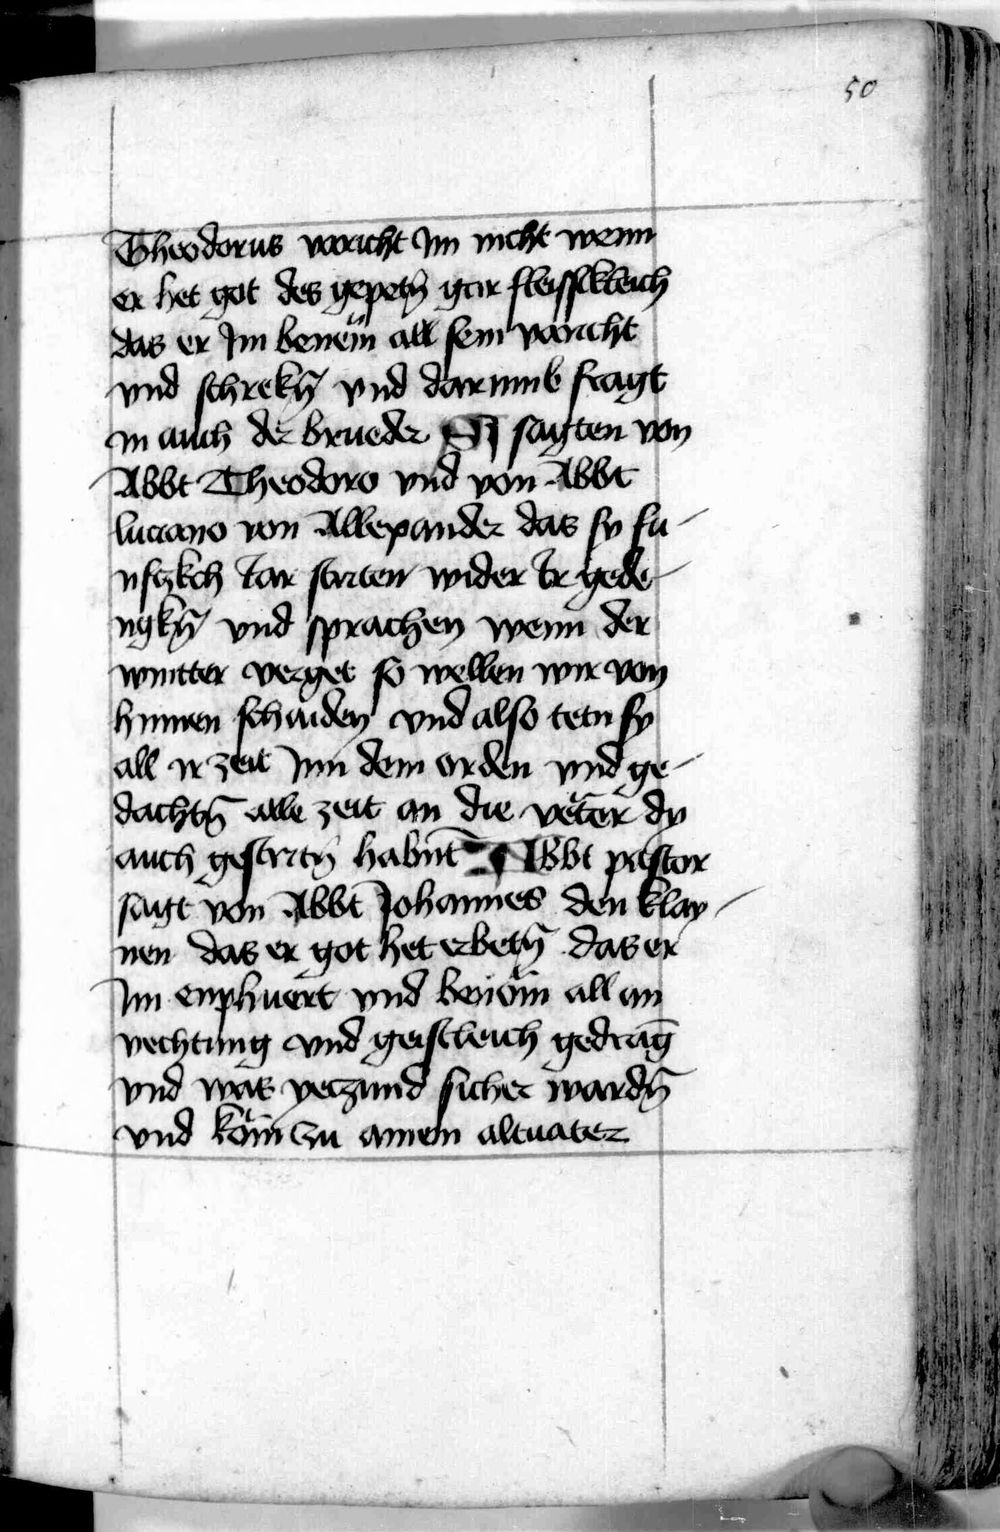 50
Theodorus voricht Im nicht wenn
er het got des gepetn̄ gar fleissikleich
das er Im benem all sein voricht
vnd schrekn̄ vnd darumb fragt
in auch der brueder Sy sagten von
Abbt Theodoro vnd von Abbt
luciano von Allexander das sy fu
nfczkch Iar striten wider Ir gede
ngkn̄ vnd sprachen wenn der
wintter verget so wellen wir von
hinnen schaiden vnd also tetn sy
all ir zeit Inn dem orden vnd ge
dachtn̄ alle zeit an die veter dy
auch gestritn̄ habnt Abbt pastor
sagt von Abbt Johannes den klay
nen das er got het erbetn̄ das er
Im enphuert vnd benöm all an
vechtung vnd geistleich gedrāg
vnd was yeczund sicher wardn̄
vnd köm zu ainem altuater